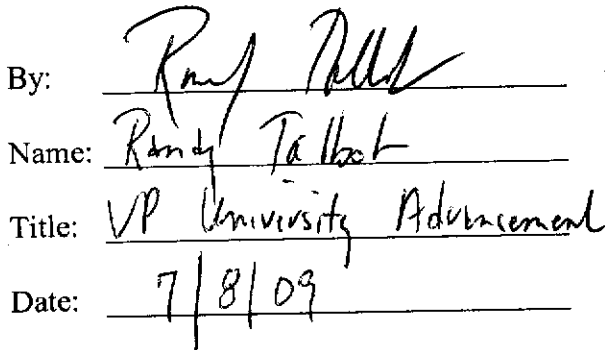 By: Randy Talbot
Name: Randy Talbot
Title: VP University Advancement
Date: 7/8/09